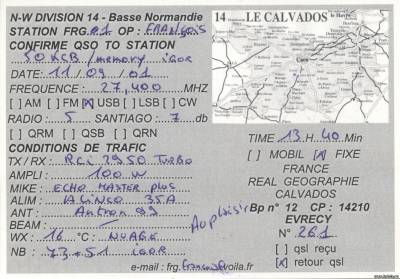 N-W DIVISION 14 - Basse Normandie
STATION FRG.01 OP : FRANÇOIS
CONFIRME QSO TO STATION
50 KCB / memory IGOR
DATE : 11 / 09 / 01
FREQUENCE : 27,400 MHZ
[ ] AM [ ] FM [X] USB [ ] LSB [ ] CW
RADIO : 5 SANTIAGO : 7 db
[ ] QRM [ ] QSB [ ] QRN
CONDITIONS DE TRAFIC
TX / RX : RCI 2950 TURBO
AMPLI : 100 W
MIKE : ECHO MASTER PLUS
ALIM : ALINCO 35A
ANT : Antron 99
BEAM :
WX : 16 °C NUAGE
NB : 73 + 51 IGOR
Au plaisir
14 LE CALVADOS
le Havre
Caen
TIME 13 H 40 Min
[ ] MOBIL [X] FIXE
FRANCE
REAL GEOGRAPHIE
CALVADOS
Bp n° 12 CP : 14210
EVRECY
N° 261
[ ] qsl reçu
[X] retour qsl
e-mail : frg. voila.fr